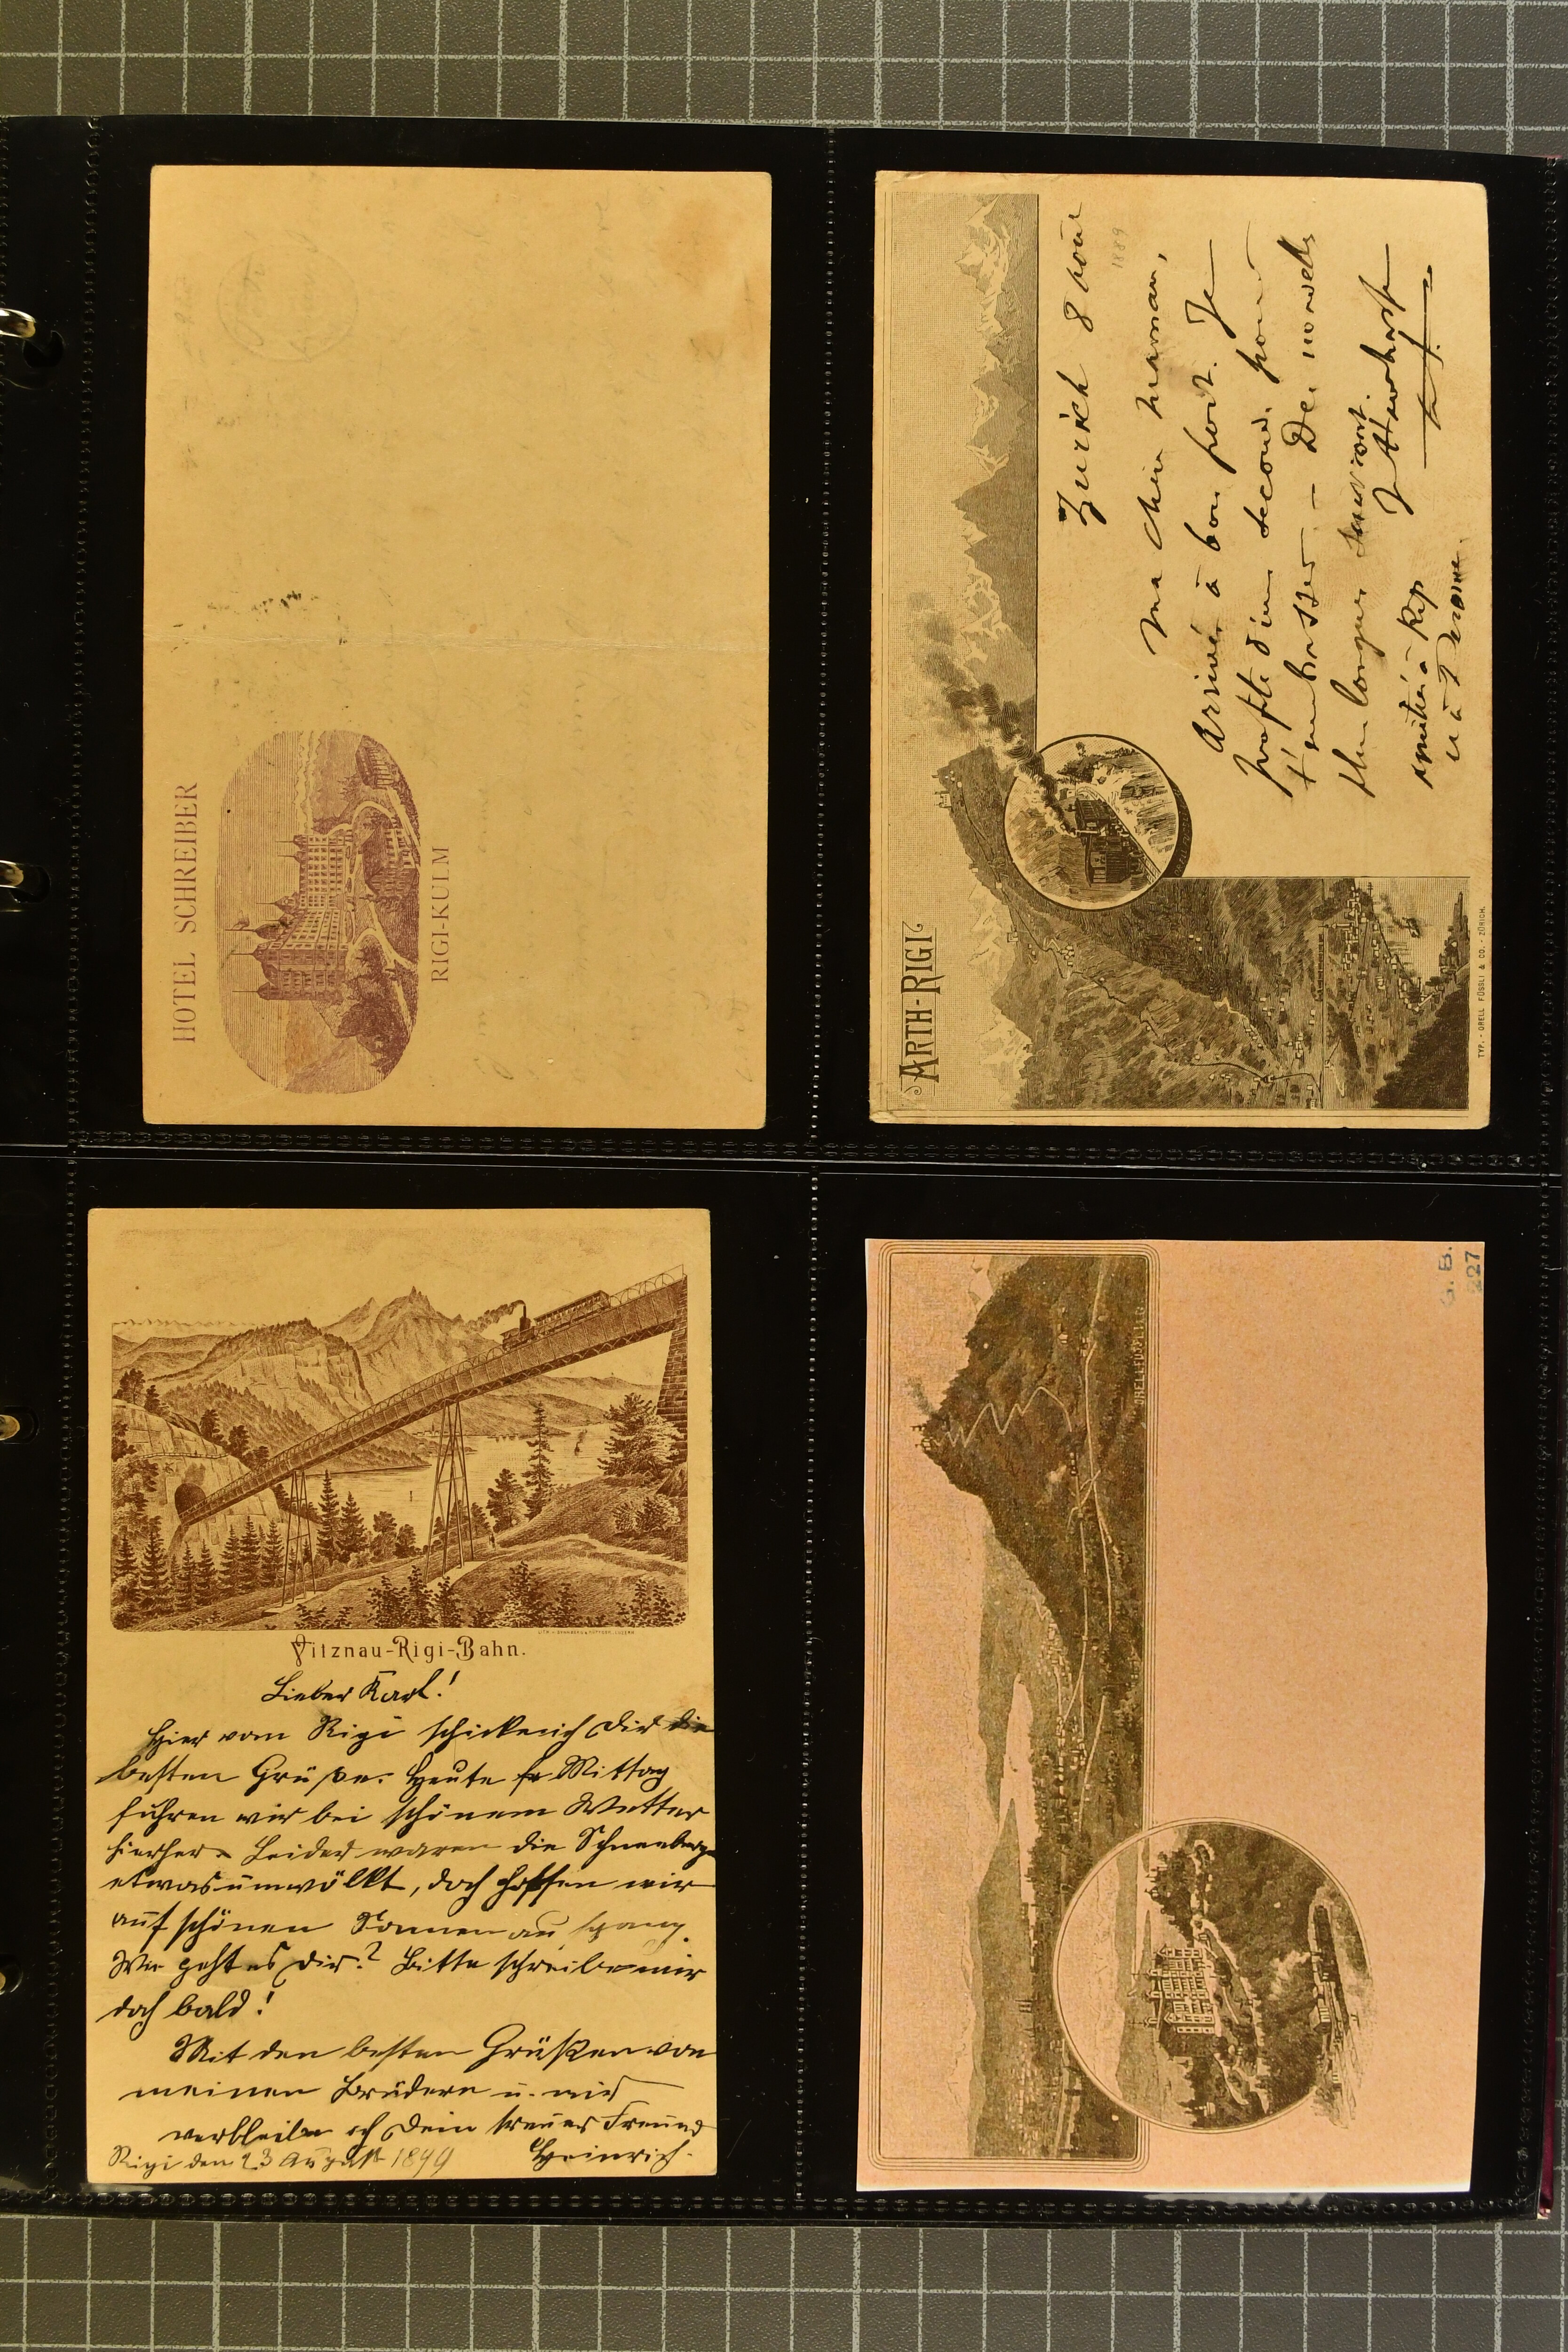 HOTEL SCHREIBER
RIGI-KULM
ARTH-RIGI
Zurich 8 août
1889
ma chère maman,
Arrivés à bon port. Je
profite d'un second pour
t'embrasser - Des nouvelles
plus longues suivront.
amitié à
et à
TYP. - ORELL FÜSSLI & CO. - ZÜRICH.
Vitznau-Rigi-Bahn.
Lieber Karl!
Hier vom Rigi schicke ich Dir die
besten Grüße. Heute Mittag
fuhren wir bei schönem Wetter
hierher. Leider waren die Schneeberge
etwas umwölkt, doch hoffen wir
auf schönen Sonnenaufgang.
Wie geht es Dir? Bitte schreibe mir
doch bald!
Mit den besten Grüßen von
meinen Brüdern u. mir
verbleibe ich Dein treuer Freund
Heinrich.
Rigi den 23 August 1899
G. B.
227
ORELL FUSSLI